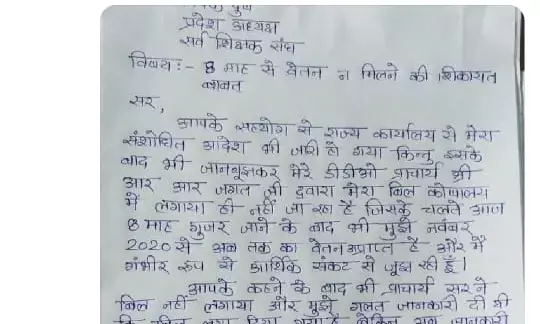 प्रदेश अध्यक्ष
सर्व शिक्षक संघ
विषय:- 8 माह से वेतन न मिलने की शिकायत
बाबत
सर,
आपके सहयोग से राज्य कार्यालय से मेरा
संशोधित आदेश भी जारी हो गया किन्तु इसके
बाद भी जानबूझकर मेरे डीडीओ प्राचार्य श्री
आर आर जगत जी द्वारा मेरा बिल कोषालय
में लगाया ही नहीं जा रहा है जिसके चलते आज
8 माह गुजर जाने के बाद भी मुझे नवंबर
2020 से अब तक का वेतन अप्राप्त है और मैं
गंभीर रूप से आर्थिक संकट से जूझ रही हूँ।
आपके कहने के बाद भी प्राचार्य सर ने
बिल नहीं लगाया और मुझे गलत जानकारी दी थी